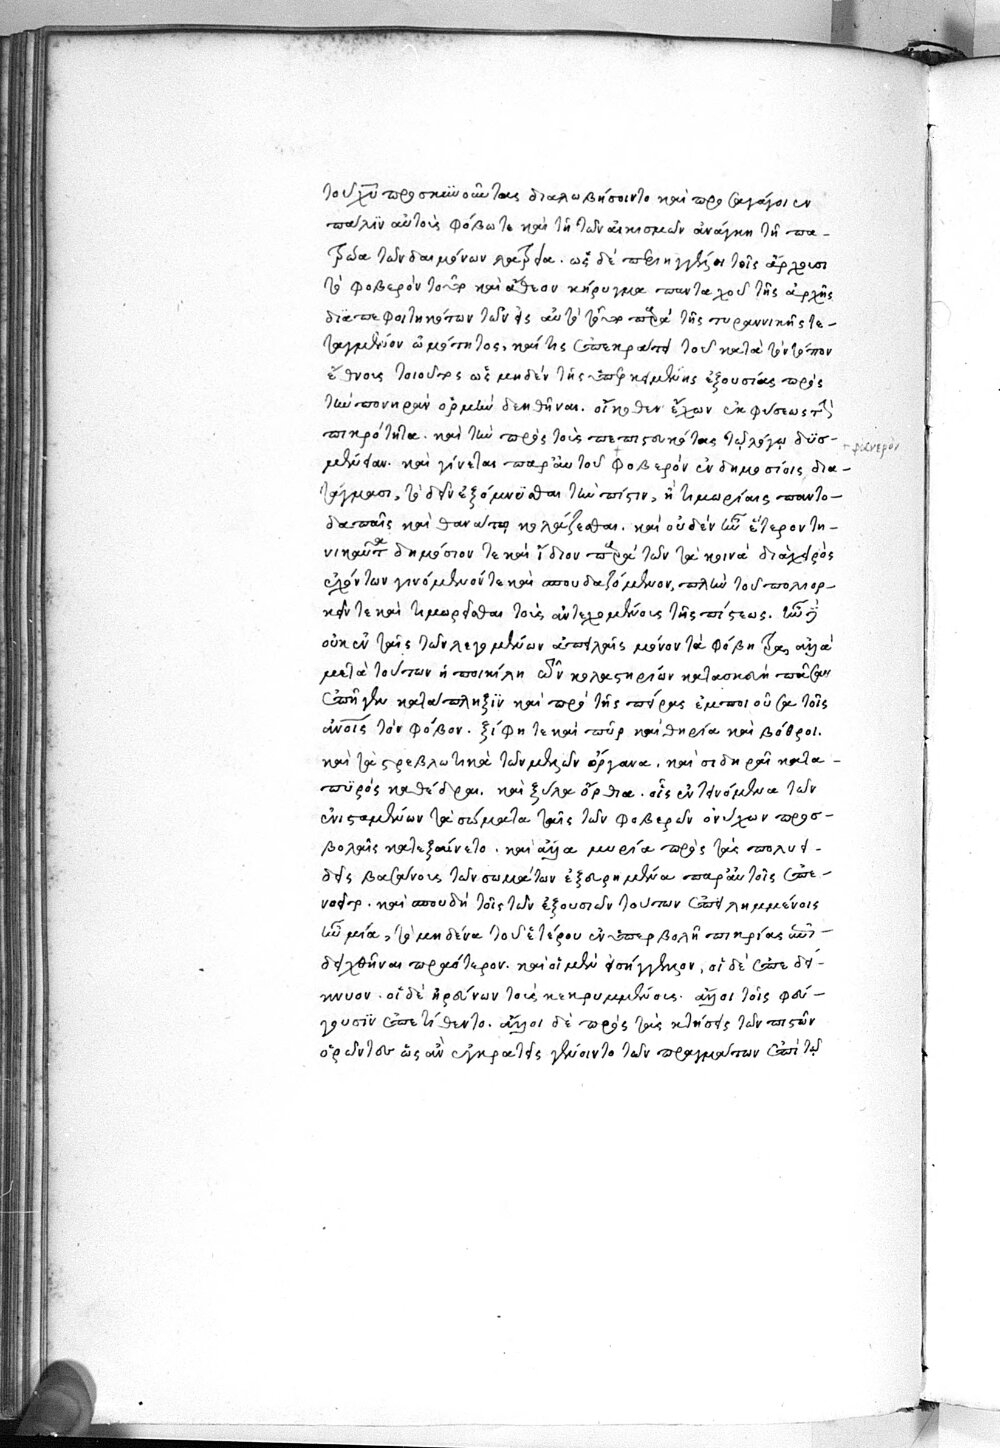 τοῦ χυ προσκυνοῦντας διαλωβήσοιντο καὶ προσαγάγοιεν
πάλιν αὐτοὺς φόβω τε καὶ τῆ τῶν αἰκισμῶν ἀνάγκη τῆ πα-
τρώα τῶν δαιμόνων λατρεία. ὡς δὲ περιήγγελτο τοῖς ἄρχουσι
τὸ φοβερὸν τοῦτο καὶ ἄθεον κήρυγμα πανταχοῦ τῆς ἀρχῆς
διαπεφοιτηκότων τῶν εἰς αὐτὸ τοῦτο παρὰ τῆς τυραννικῆς τε-
ταγμένων ὠμότητος, καί τις ἐπεκράτει τοῦ κατὰ τὸν τόπον
ἔθνους τοιοῦτος ὡς μηδὲν τῆς ὑπερκειμένης ἐξουσίας πρὸς
τὴν πονηρὰν ὁρμὴν δεηθῆναι. οἴκοθεν ἔχων ἐκ φύσεως τὴν
πικρότητα. καὶ τὴν πρὸς τοὺς πεπιστευκότας τῷ λόγῳ δυσ-
φανερὸν
μένειαν. καὶ γίνεται παρ' αὐτοῦ φοβερὸν ἐν δημοσίοις δια-
τάγμασι, τὸ δεῖν ἐξόμνυσθαι τὴν πίστιν, ἢ τιμωρίαις παντο-
δαπαῖς καὶ θανάτῳ κολάζεσθαι. καὶ οὐδὲν ἦν ἕτερον τη-
νικαῦτα δημόσιον τε καὶ ἴδιον παρὰ τῶν τὰ κοινὰ διὰ χειρὸς
ἐχόντων γινόμενόν τε καὶ σπουδαζόμενον, πλὴν τοῦ πολιορ-
κεῖν τε καὶ τιμωρεῖσθαι τοὺς ἀντεχομένους τῆς πίστεως. ἦν δὲ
οὐκ ἐν ταῖς τῶν λεγομένων ἀπειλαῖς μόνον τὰ φόβητρα, ἀλλὰ
μετὰ τούτων ἡ ποικίλη τῶν κολαστηρίων κατασκευὴ πᾶσαν
ἐπῆγεν κατάπληξιν καὶ πρὸ τῆς πείρας ἐμποιοῦσα τοῖς
ἀνοις τὸν φόβον. ξίφη τε καὶ πῦρ καὶ θηρία καὶ βόθροι.
καὶ τὰ στρεβλωτικὰ τῶν μελῶν ὄργανα. καὶ σιδηραῖ κατα-
πυρὸς καθέδραι. καὶ ξύλα ὄρθια. οἷς ἐντεινόμενα τῶν
ἐνισταμένων τὰ σώματα ταῖς τῶν φοβερῶν ὀνύχων προσ-
βολαῖς κατεξαίνετο. καὶ ἄλλα μυρία πρὸς τὰς πολυει-
δεῖς βασάνους τῶν σωμάτων ἐξευρημένα παρ' αὐτοῖς ἐπε-
νοεῖτο. καὶ σπουδὴ τοῖς τῶν ἐξουσιῶν τούτων ἐπειλημμένοις
ἦν μία, τὸ μηδένα τοῦ ἑτέρου ἐν ὑπερβολῆ πικρίας ἀπο-
δειχθῆναι πραότερον. καὶ οἱ μὲν εἰσήγγελλον, οἱ δὲ ἐπεδεί-
κνυον. οἱ δὲ ἠρεύνων τοὺς κεκρυμμένους. ἄλλοι τοῖς φεύ-
γουσιν ἐπετίθεντο. ἄλλοι δὲ πρὸς τὰς κτήσεις τῶν πιστῶν
ὁρῶντες ὡς ἂν ἐγκρατεῖς γένοιντο τῶν πραγμάτων ἐπὶ τῷ